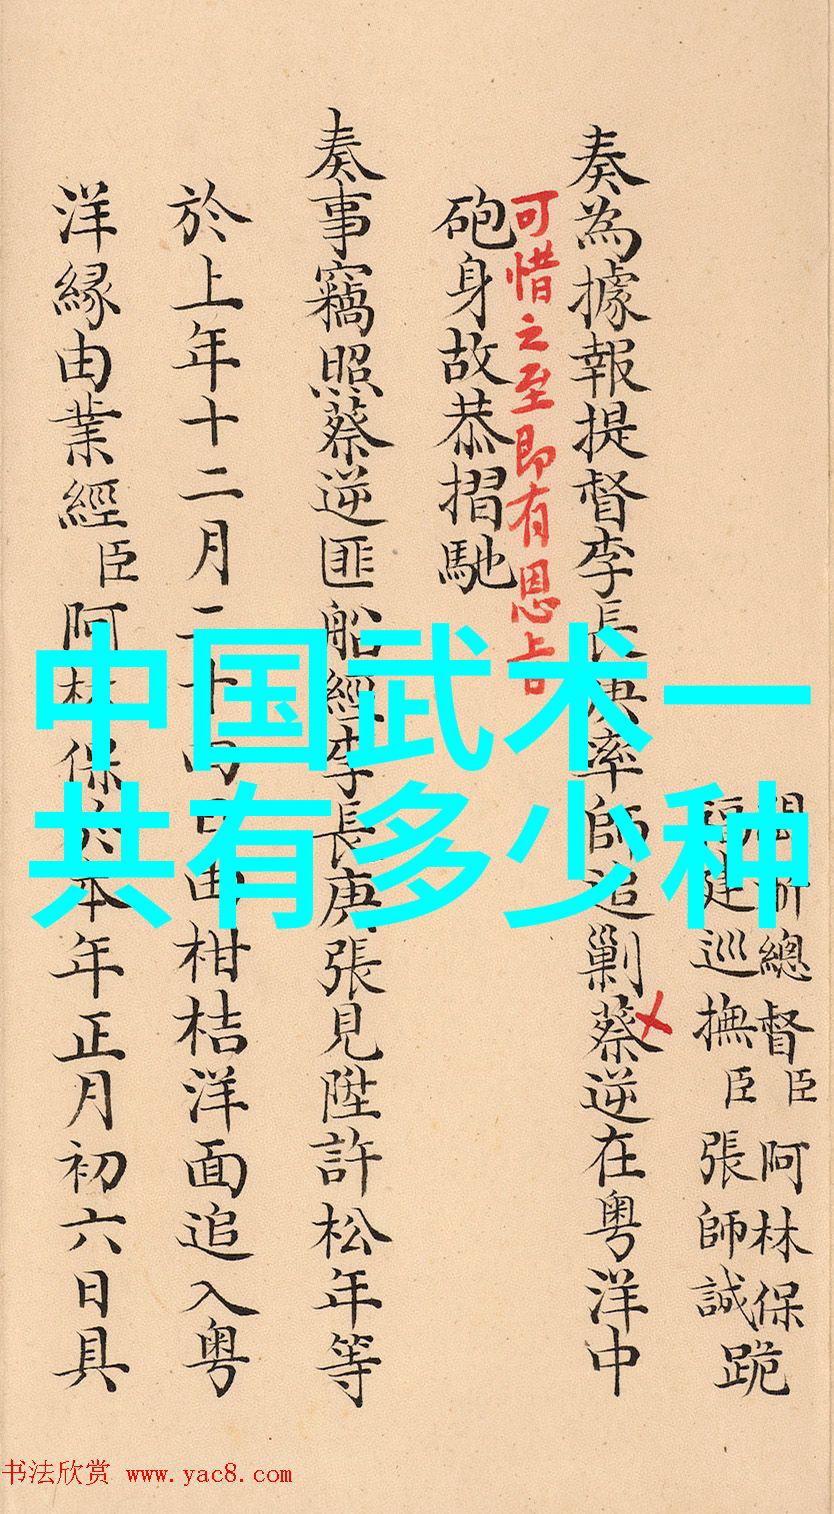 中国武术一
共有多少种
閩浙總督臣阿林保
福建巡撫臣張師誠跪
奏為據報提督李長庚率師追剿蔡逆在粵洋中
可惜之至即有恩旨
砲身故恭摺馳
奏事竊照蔡逆匪船經李長庚張見陞許松年等
於上年十二月二十四日由柑桔洋面追入粵
洋緣由業經臣阿林保於本年正月初六日具
书法欣赏 www.yac8.com